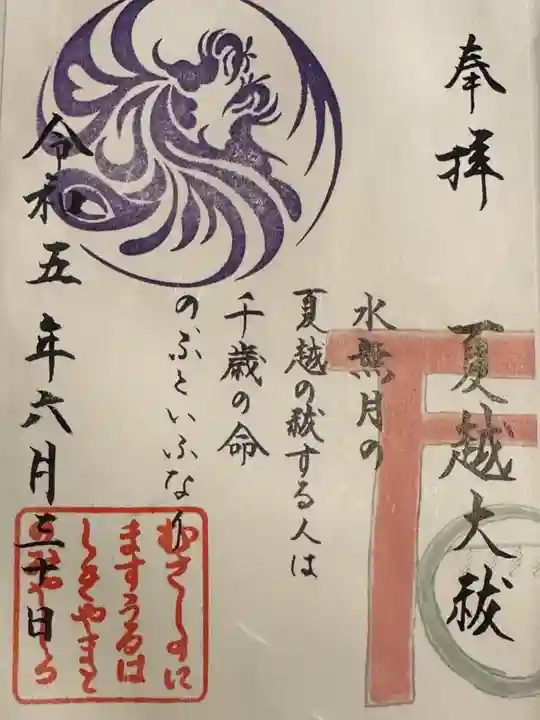 奉拝
夏越大祓
水無月の
夏越の祓する人は
千歳の命
のぶといふなり
令和五年六月三十日
むさしのに
ますうるは
しきやまと